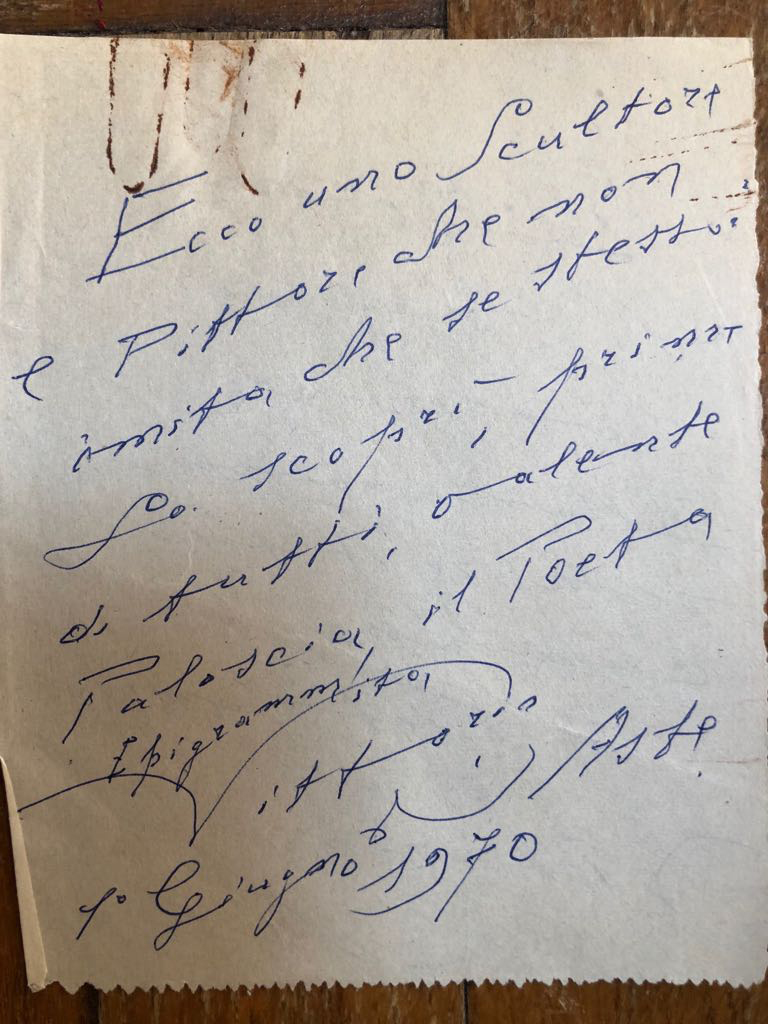 Ecco uno Scultore
e Pittore, che non
imita che se stesso.
Lo scoprì, prima
di tutti, valente
Paloscia, il Poeta
Epigrammista
Vittorio Aste.
1° Giugno 1970